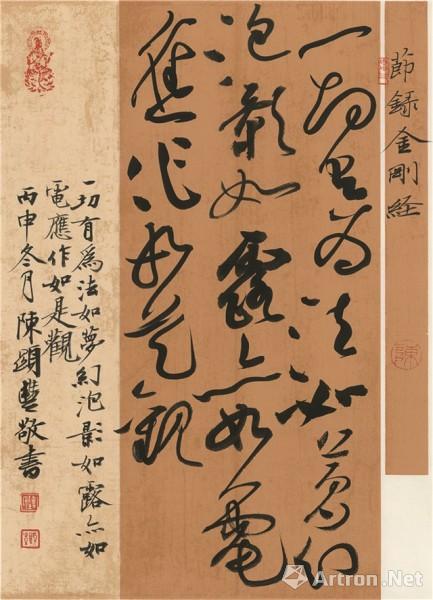 節錄金剛経
一切有為法如夢幻
泡影如露亦如電
應作如是觀
一切有爲法如夢幻泡影如露亦如
電應作如是觀
丙申冬月陳敬書
Artron.Net